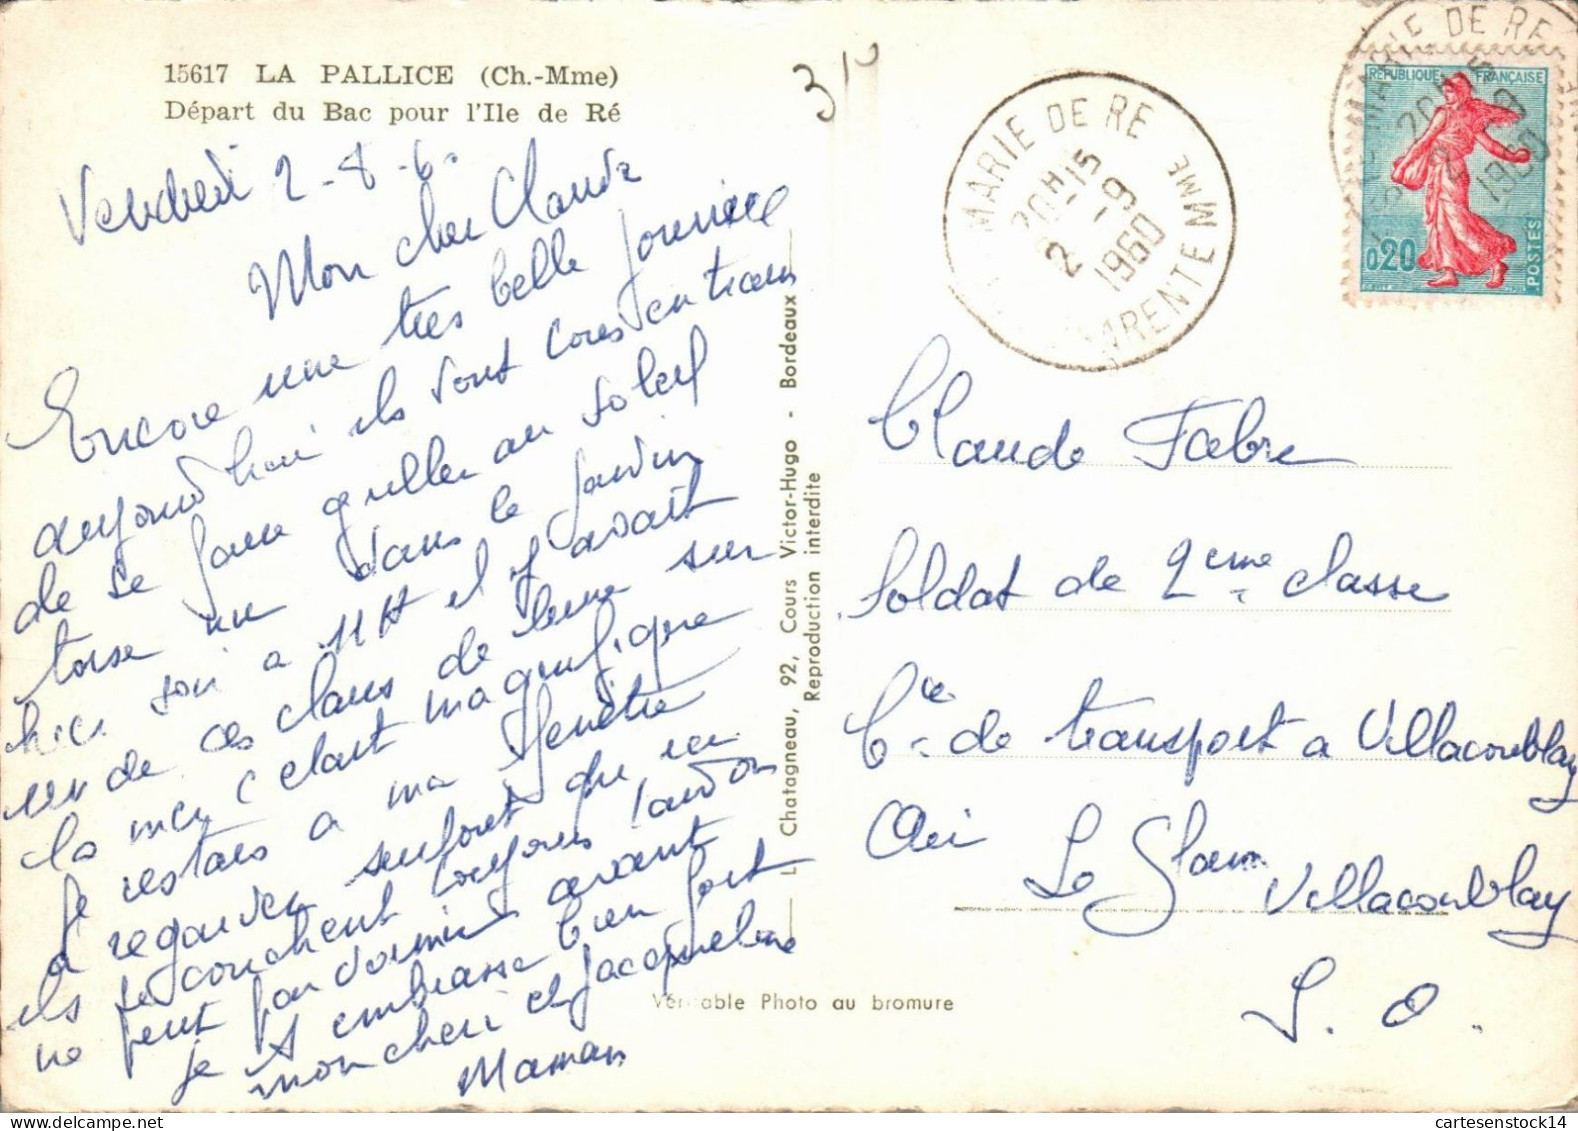 15617 LA PALLICE (Ch.-Mme)
Départ du Bac pour l'Ile de Ré
310
Vendredi 2-8-60
Mon cher Claude
Encore une très belle journée
aujourd'hui ils sont tous en train
de se faire griller au soleil
torse nu dans le jardin
hier soir a 11H il y avait
un de ces clairs de lune sur
la mer c'etait magnifique
Je restais a ma fenêtre
a regarder surtout que
ils se couchent toujours tard
ne peut pas dormir avant
je t'embrasse bien fort
mon cheri et Jacqueline
Maman
L Chatagneau, 92, Cours Victor-Hugo - Bordeaux
Reproduction interdite
Véritable Photo au bromure
MARIE DE RE
20H15
2 - 9
1960
ARENTE MME
MARIE DE RE
20H15
2 - 9
1960
REPUBLIQUE FRANÇAISE
0,20
POSTES
Claude Fabre
Soldat de 2eme classe
Cie de transport a Villacoublay
Air
Villacoublay
S. O.
cartesenstock14